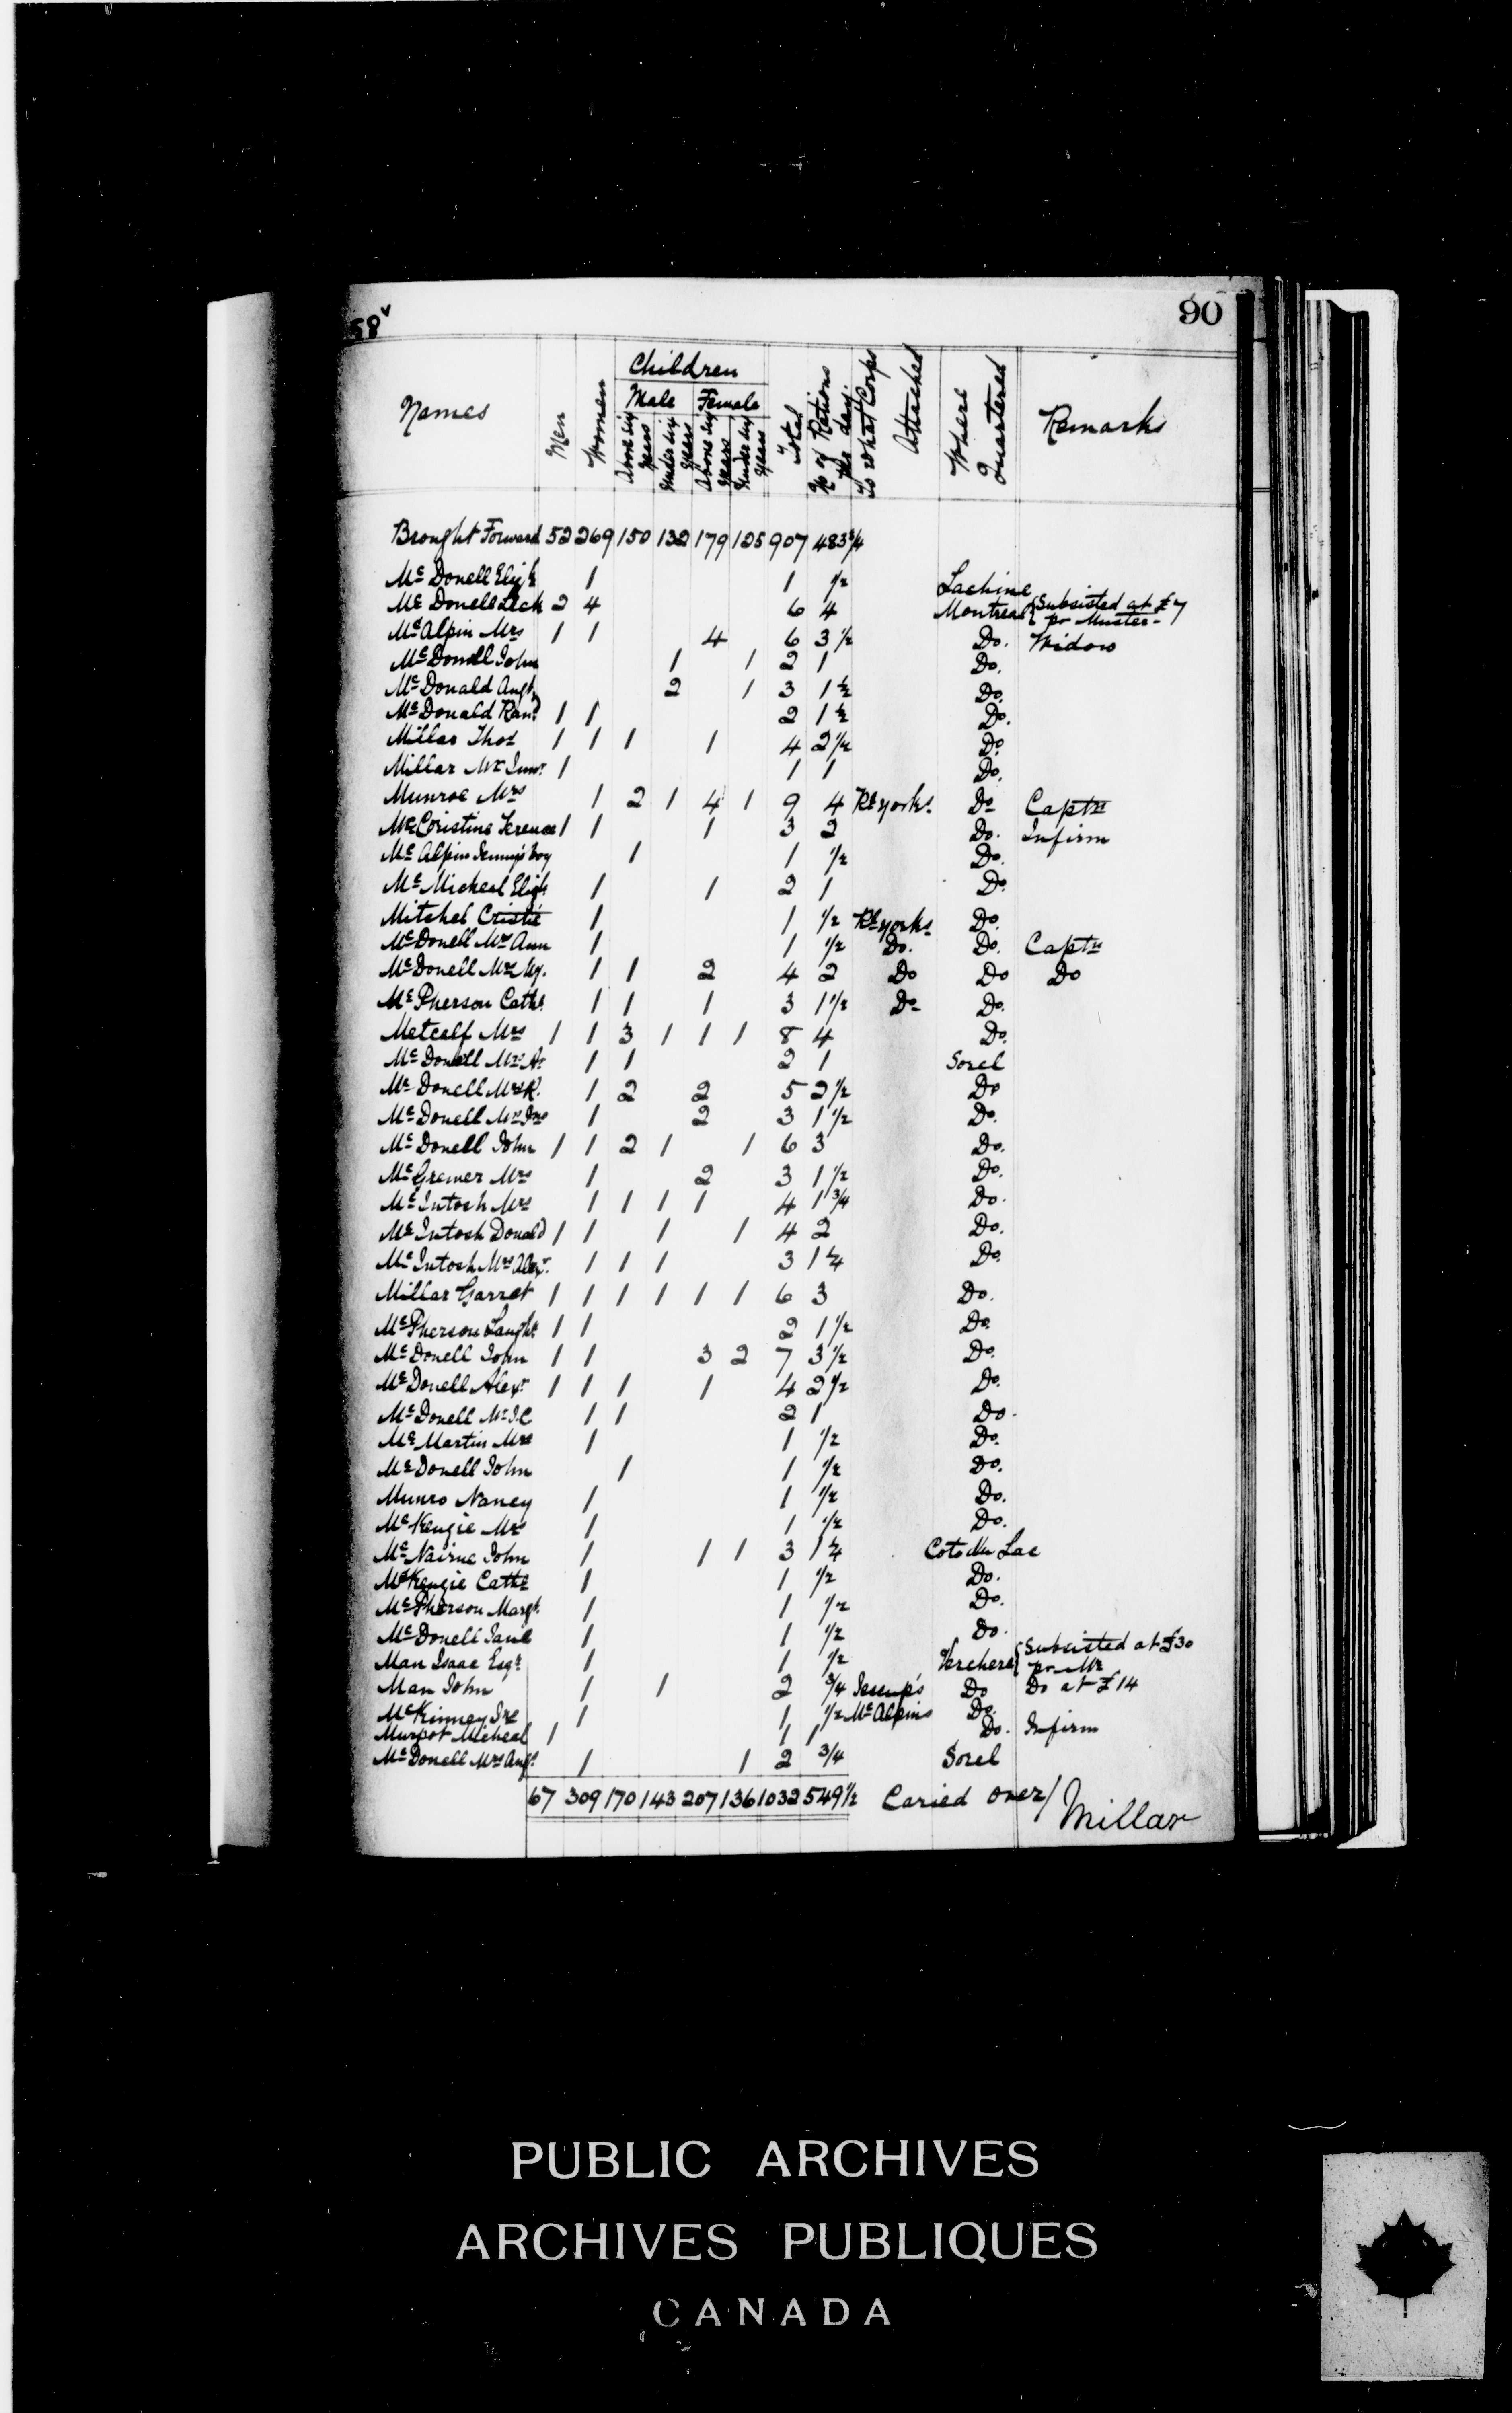 58v
90
Names Men Women Children Male Above six Years Under six Years Female Above six Years Under six Years Total No of Rations per day To what Corps Attached Where Quartered Remarks
Brought Forward 52 269 150 132 179 125 907 483 3/4
Mc Donell Elizh 1 1 1/2 Lachine
Mc Donell Lach 2 4 6 4 Montreal { Subsisted at £7 pr Muster-
Mc Alpin Mrs 1 1 4 6 3 1/2 Do. Widow
Mc Donell John 1 1 2 1 Do.
Mc Donald Augt 2 1 3 1 1/2 Do.
Mc Donald Rand 1 1 2 1 1/2 Do.
Millar Thos 1 1 1 1 4 2 1/2 Do
Millar Wm Junr 1 1 1 Do.
Munroe Mrs 1 2 1 4 1 9 4 Rl yorks. Do Captn
Mc Coristine Terence 1 1 1 3 2 Do. Infirm
Mc Alpin Jennys boy 1 1 1/2 Do.
Mc Micheal Elizh 1 1 2 1 Do
Mitchel Cristie 1 1 1/2 Rl yorks. Do.
Mc Donell Mrs Ann 1 1 1/2 Do. Do. Captn
Mc Donell Mrs My. 1 1 2 4 2 Do Do Do
Mc Pherson Cathe 1 1 1 3 1 1/2 Do Do.
Metcalf Mrs 1 1 3 1 1 1 8 4 Do.
Mc Donell Mrs Ar 1 1 2 1 Sorel
Mc Donell Mrs R. 1 2 2 5 2 1/2 Do
Mc Donell Mrs Jno 1 2 3 1 1/2 Do.
Mc Donell John 1 1 2 1 1 6 3 Do.
Mc Gremer Mrs 1 2 3 1 1/2 Do.
Mc Intoch Mrs 1 1 1 1 4 1 3/4 Do.
Mc Intosh Donald 1 1 1 1 4 2 Do.
Mc Intosh Mrs Alexr. 1 1 1 3 1 1/4 Do.
Millar Garret 1 1 1 1 1 1 6 3 Do.
Mc Pherson Laughn 1 1 2 1 1/2 Do
Mc Donell John 1 1 3 2 7 3 1/2 Do.
Mc Donell Alexr 1 1 1 1 4 2 1/2 Do.
Mc Donell Mrs J.C 1 1 2 1 Do.
Mc Martin Mrs 1 1 1/2 Do.
Mc Donell John 1 1 1/2 Do.
Munro Nancy 1 1 1/2 Do.
Mc Kenzie Mrs 1 1 1/2 Do.
Mc Nairne John 1 1 1 3 1 1/4 Coto du Lac
McKenzie Cathe 1 1 1/2 Do.
Mc Pherson Margt. 1 1 1/2 Do.
Mc Donell Jane 1 1 1/2 Do.
Man Isaac Esqr 1 1 1/2 Verchere { Subsisted at £30 pr Mr
Man John 1 1 2 3/4 Jessup's Do Do at £14
McKinney Sre 1 1 1/2 Mc Alpins Do.
Murpot Micheal 1 1 1 Do. Infirm
Mc Donell Mrs Angs. 1 1 2 3/4 Sorel
67 309 170 143 207 136 1032 549 1/2 Caried over/
Millar
PUBLIC ARCHIVES
ARCHIVES PUBLIQUES
CANADA